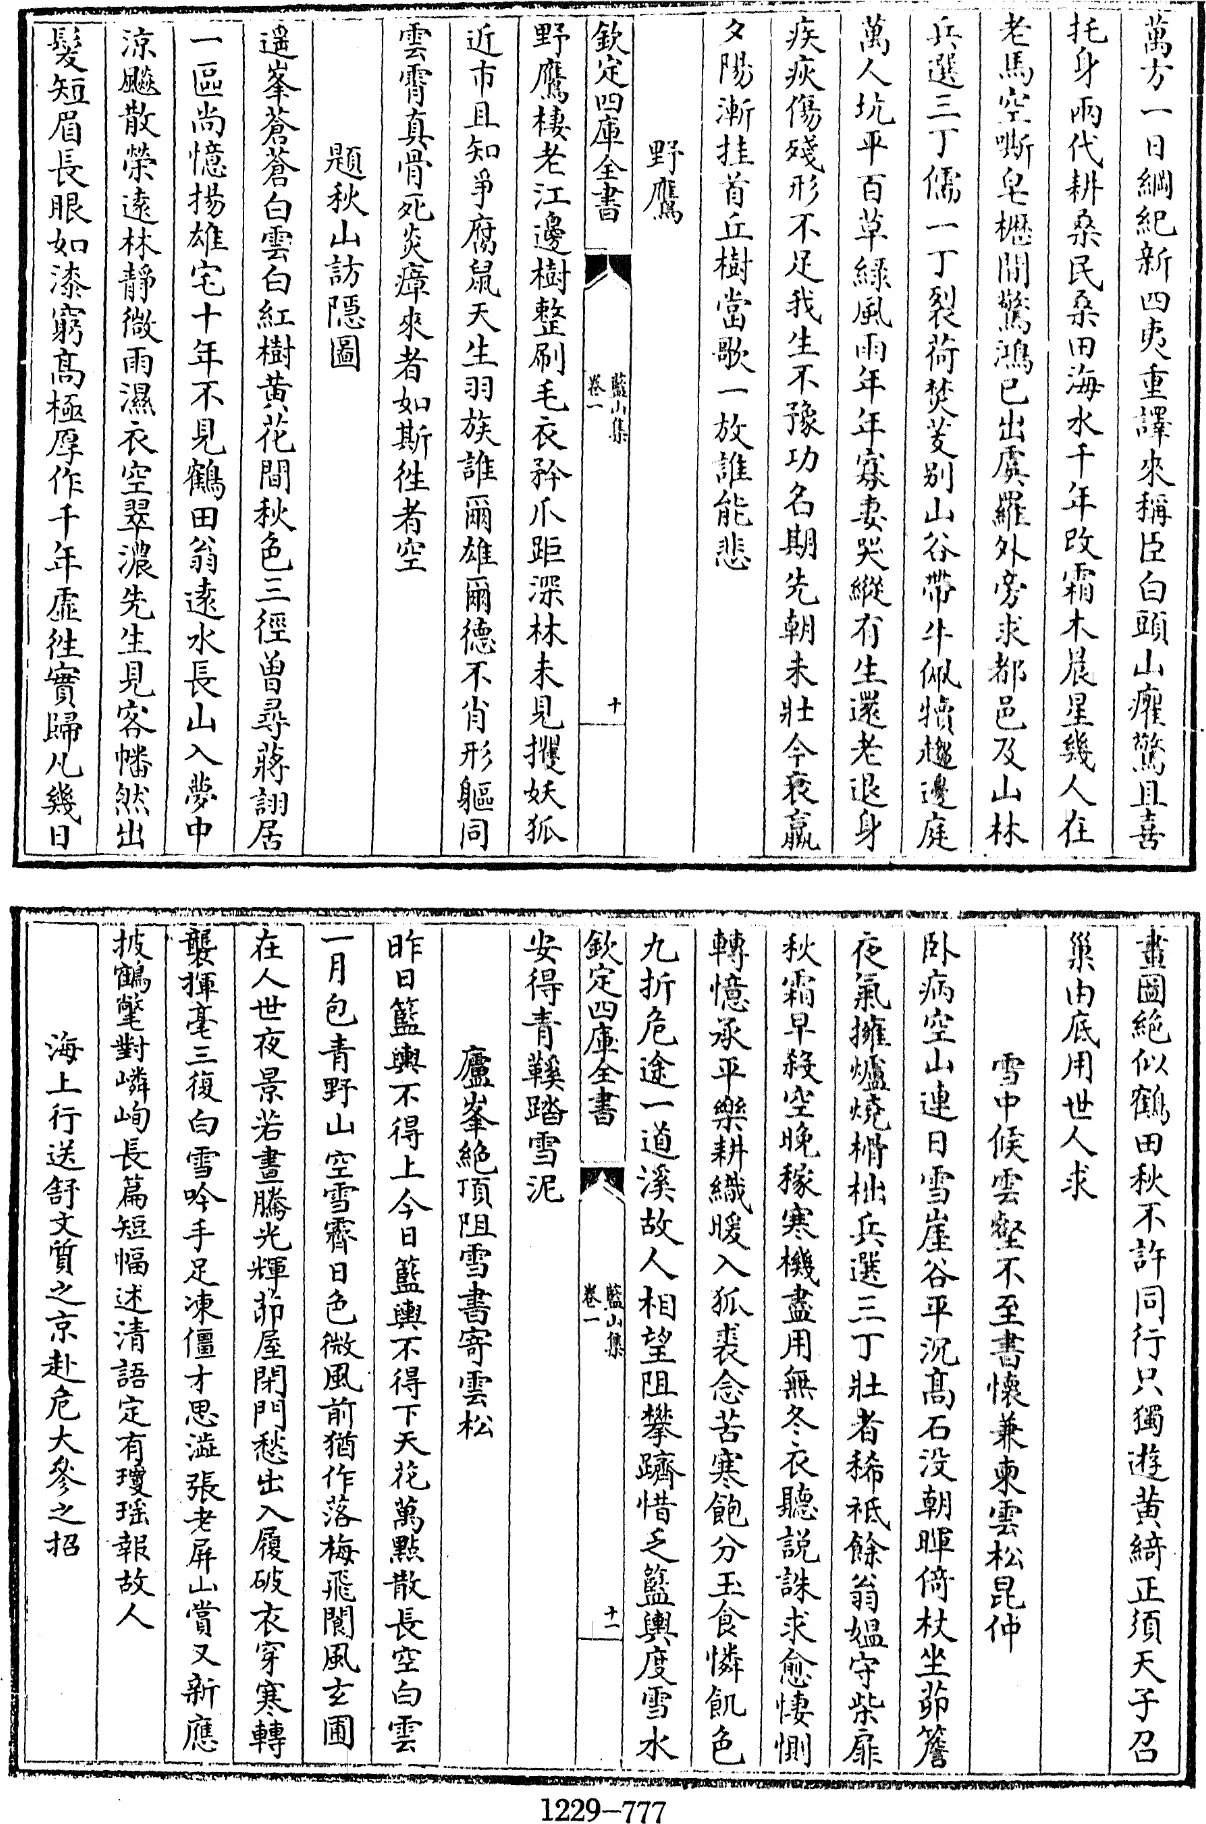 萬方一日綱紀新四夷重譯來稱臣白頭山癯驚且喜
托身兩代耕桑民桑田海水千年改霜木晨星幾人在
老馬空嘶皂櫪間驚鴻已出虞羅外旁求都邑及山林
兵選三丁儒一丁裂荷焚芰別山谷帶牛佩犢趨邊庭
萬人坑平百草綠風雨年年寡妻哭縱有生還老退身
疾疢傷殘形不足我生不豫功名期先朝未壯今衰羸
夕陽漸挂首丘樹當歌一放誰能悲
野鷹
欽定四庫全書
藍山集
卷一
十
野鷹棲老江邊樹整刷毛衣矜爪距深林未見攫妖狐
近市且知爭腐鼠天生羽族誰爾雄爾德不肖形軀同
雲霄真骨死炎瘴來者如斯徃者空
題秋山訪隱圖
遥峯蒼蒼白雲白紅樹黄花間秋色三徑曾尋蔣詡居
一區尚憶揚雄宅十年不見鶴田翁遠水長山入夢中
涼飈散榮遠林靜微雨濕衣空翠濃先生見客幡然出
髮短眉長眼如漆窮高極厚作千年虛徃實歸凡幾日
畫圖絶似鶴田秋不許同行只獨遊黄綺正須天子召
巢由底用世人求
雪中候雲壑不至書懷兼柬雲松昆仲
卧病空山連日雪崖谷平沉髙石没朝暉倚杖坐茆簷
夜氣擁爐燒榾柮兵選三丁壯者稀祗餘翁媪守柴扉
秋霜早殺空晚稼寒機盡用無冬衣聽説誅求愈悽惻
轉憶承平樂耕織暖入狐裘念苦寒飽分玉食憐飢色
九折危途一道溪故人相望阻攀躋惜乏籃輿度雪水
欽定四庫全書
藍山集
卷一
十一
安得青鞵踏雪泥
廬峯絶頂阻雪書寄雲松
昨日籃輿不得上今日籃輿不得下天花萬點散長空白雲
一月包青野山空雪霽日色微風前猶作落梅飛閬風玄圃
在人世夜景若晝騰光輝茆屋閉門愁出入履破衣穿寒轉
襲揮毫三復白雪吟手足凍僵才思澁張老屏山賞又新應
披鶴氅對嶙峋長篇短幅述清語定有瓊瑶報故人
海上行送舒文質之京赴危大參之招
1229-777